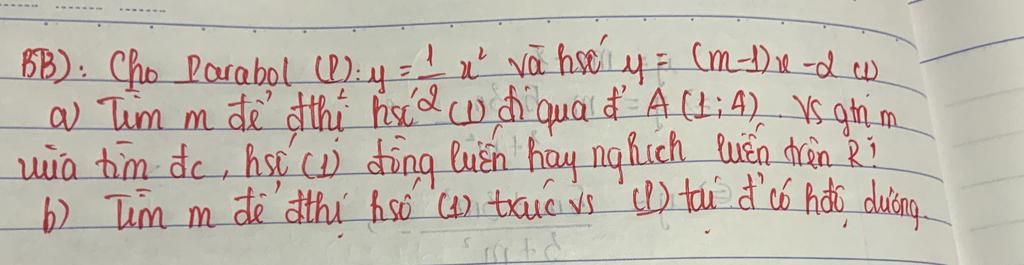 BB): Cho Parabol (P): y = 1/2 x² và hsố y = (m-1)x - 2 (1)
a) Tìm m để đthị hsố (1) đi qua đ' A (1; 4). Vs gtrị m
vừa tìm đc, hsố (1) đồng luến hay nghịch luến trên R?
b) Tìm m để đthị hsố (1) txúc vs (P) tại đ' có hđộ dương.